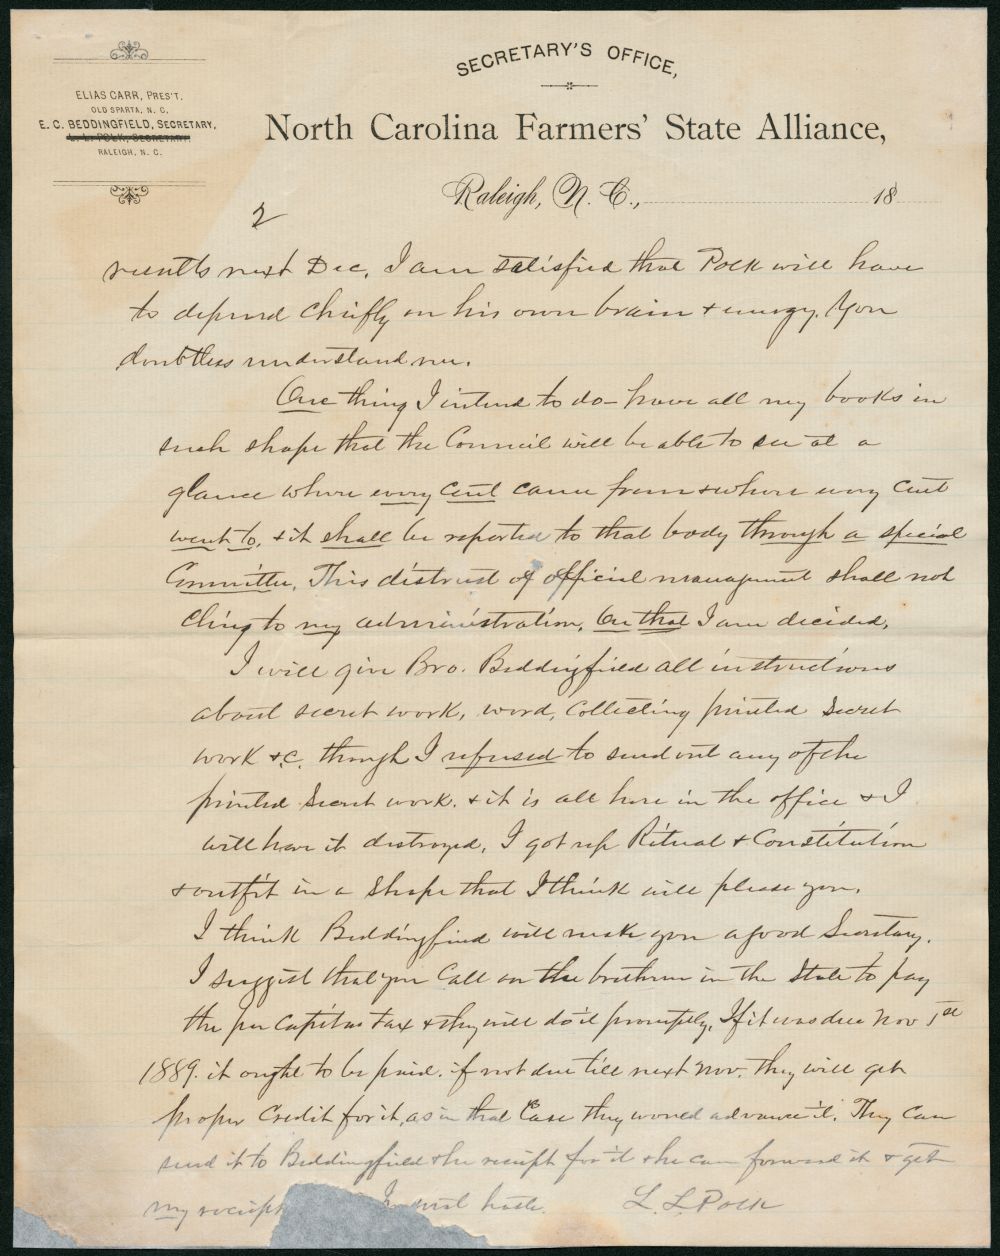 SECRETARY'S OFFICE,
ELIAS CARR, PRES'T.
OLD SPARTA, N. C.
E. C. BEDDINGFIELD, SECRETARY,
L. L. POLK, SECRETARY,
RALEIGH, N. C.
North Carolina Farmers' State Alliance,
Raleigh, N. C., 18
2
results next Dec, I am satisfied that Polk will have
to depend chiefly on his own brain & energy. You
doubtless understand me.
One thing I intend to do – have all my books in
such shape that the Council will be able to see at a
glance where every cent came from & where every cent
went to, & it shall be reported to that body through a special
Committee. This distrust of official management shall not
cling to my administration. On that I am decided.
I will give Bro. Beddingfield all instructions
about secret work, word, collecting printed secret
work &c. though I refused to send out any of the
printed secret work. & it is all here in the office & I
will have it destroyed. I got up Ritual & Constitution
& outfit in a shape that I think will please you.
I think Beddingfield will make you a good Secretary.
I suggest that you call on the brethren in the State to pay
the per capita tax & they will do it promptly. If it was due Nov 1st
1889. it ought to be paid. if not due till next Nov. they will get
proper credit for it, as in that case they would advance it. They can
send it to Beddingfield & he receipt for it & he can forward it & get
my receipt In great haste. L. L. Polk